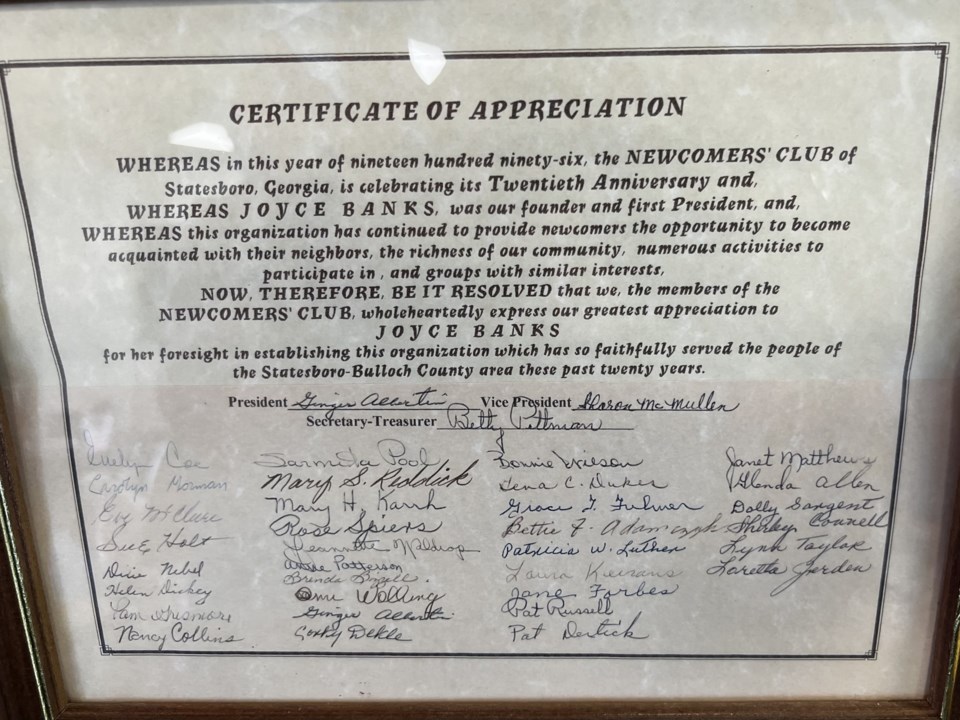 CERTIFICATE OF APPRECIATION
WHEREAS in this year of nineteen hundred ninety-six, the NEWCOMERS' CLUB of
Statesboro, Georgia, is celebrating its Twentieth Anniversary and,
WHEREAS JOYCE BANKS, was our founder and first President, and,
WHEREAS this organization has continued to provide newcomers the opportunity to become
acquainted with their neighbors, the richness of our community, numerous activities to
participate in , and groups with similar interests,
NOW, THEREFORE, BE IT RESOLVED that we, the members of the
NEWCOMERS' CLUB, wholeheartedly express our greatest appreciation to
JOYCE BANKS
for her foresight in establishing this organization which has so faithfully served the people of
the Statesboro-Bulloch County area these past twenty years.
President Ginger Vice President Sharon McMullen
Secretary-Treasurer Betty Pittman
Evelyn Coe
Carolyn Morman
Eve McClure
Sue Holt
Dixie Nebel
Helen Dickey
Pam
Nancy Collins
Pool
Mary S.
Mary H. Karrh
Rose Spiers
Jeannette Waldrop
Anne Patterson
Brenda
Walling
Ginger
Corky Dekle
Bonnie Wilson
Lena C. Dukes
Grace T. Fulmer
Bettie F. Adamczyk
Patricia W. Luther
Laura
Jane Forbes
Pat Russell
Pat
Janet Matthews
Glenda Allen
Dolly Sargent
Shirley Connell
Lynn Taylor
Loretta Jorden